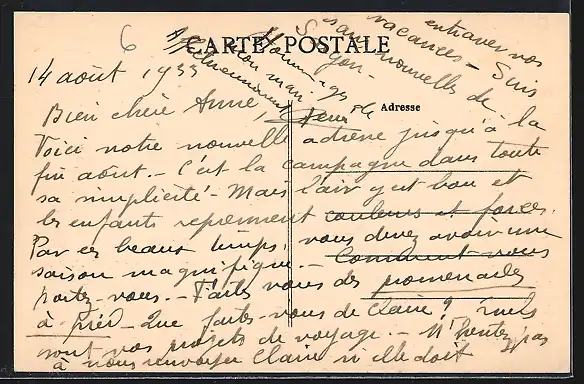 6
CARTE POSTALE
Adresse
14 août 1933
Bien chère Anne,
Voici notre nouvelle adresse jusqu'à la
fin août. - C'est la campagne dans toute
sa simplicité - Mais l'air y est bon et
les enfants reprennent couleurs et forces.
Par ces beaux temps, vous devez avoir une
saison magnifique. - Comment vous
portez-vous. - Faites vous des promenades
à pied - Que faites-vous de Claire ? Quels
sont vos projets de voyage. - N'hésitez pas
à nous envoyer Claire si elle doit
entraver vos
vacances - Suis
sans nouvelles de
Hommages
de mon mari